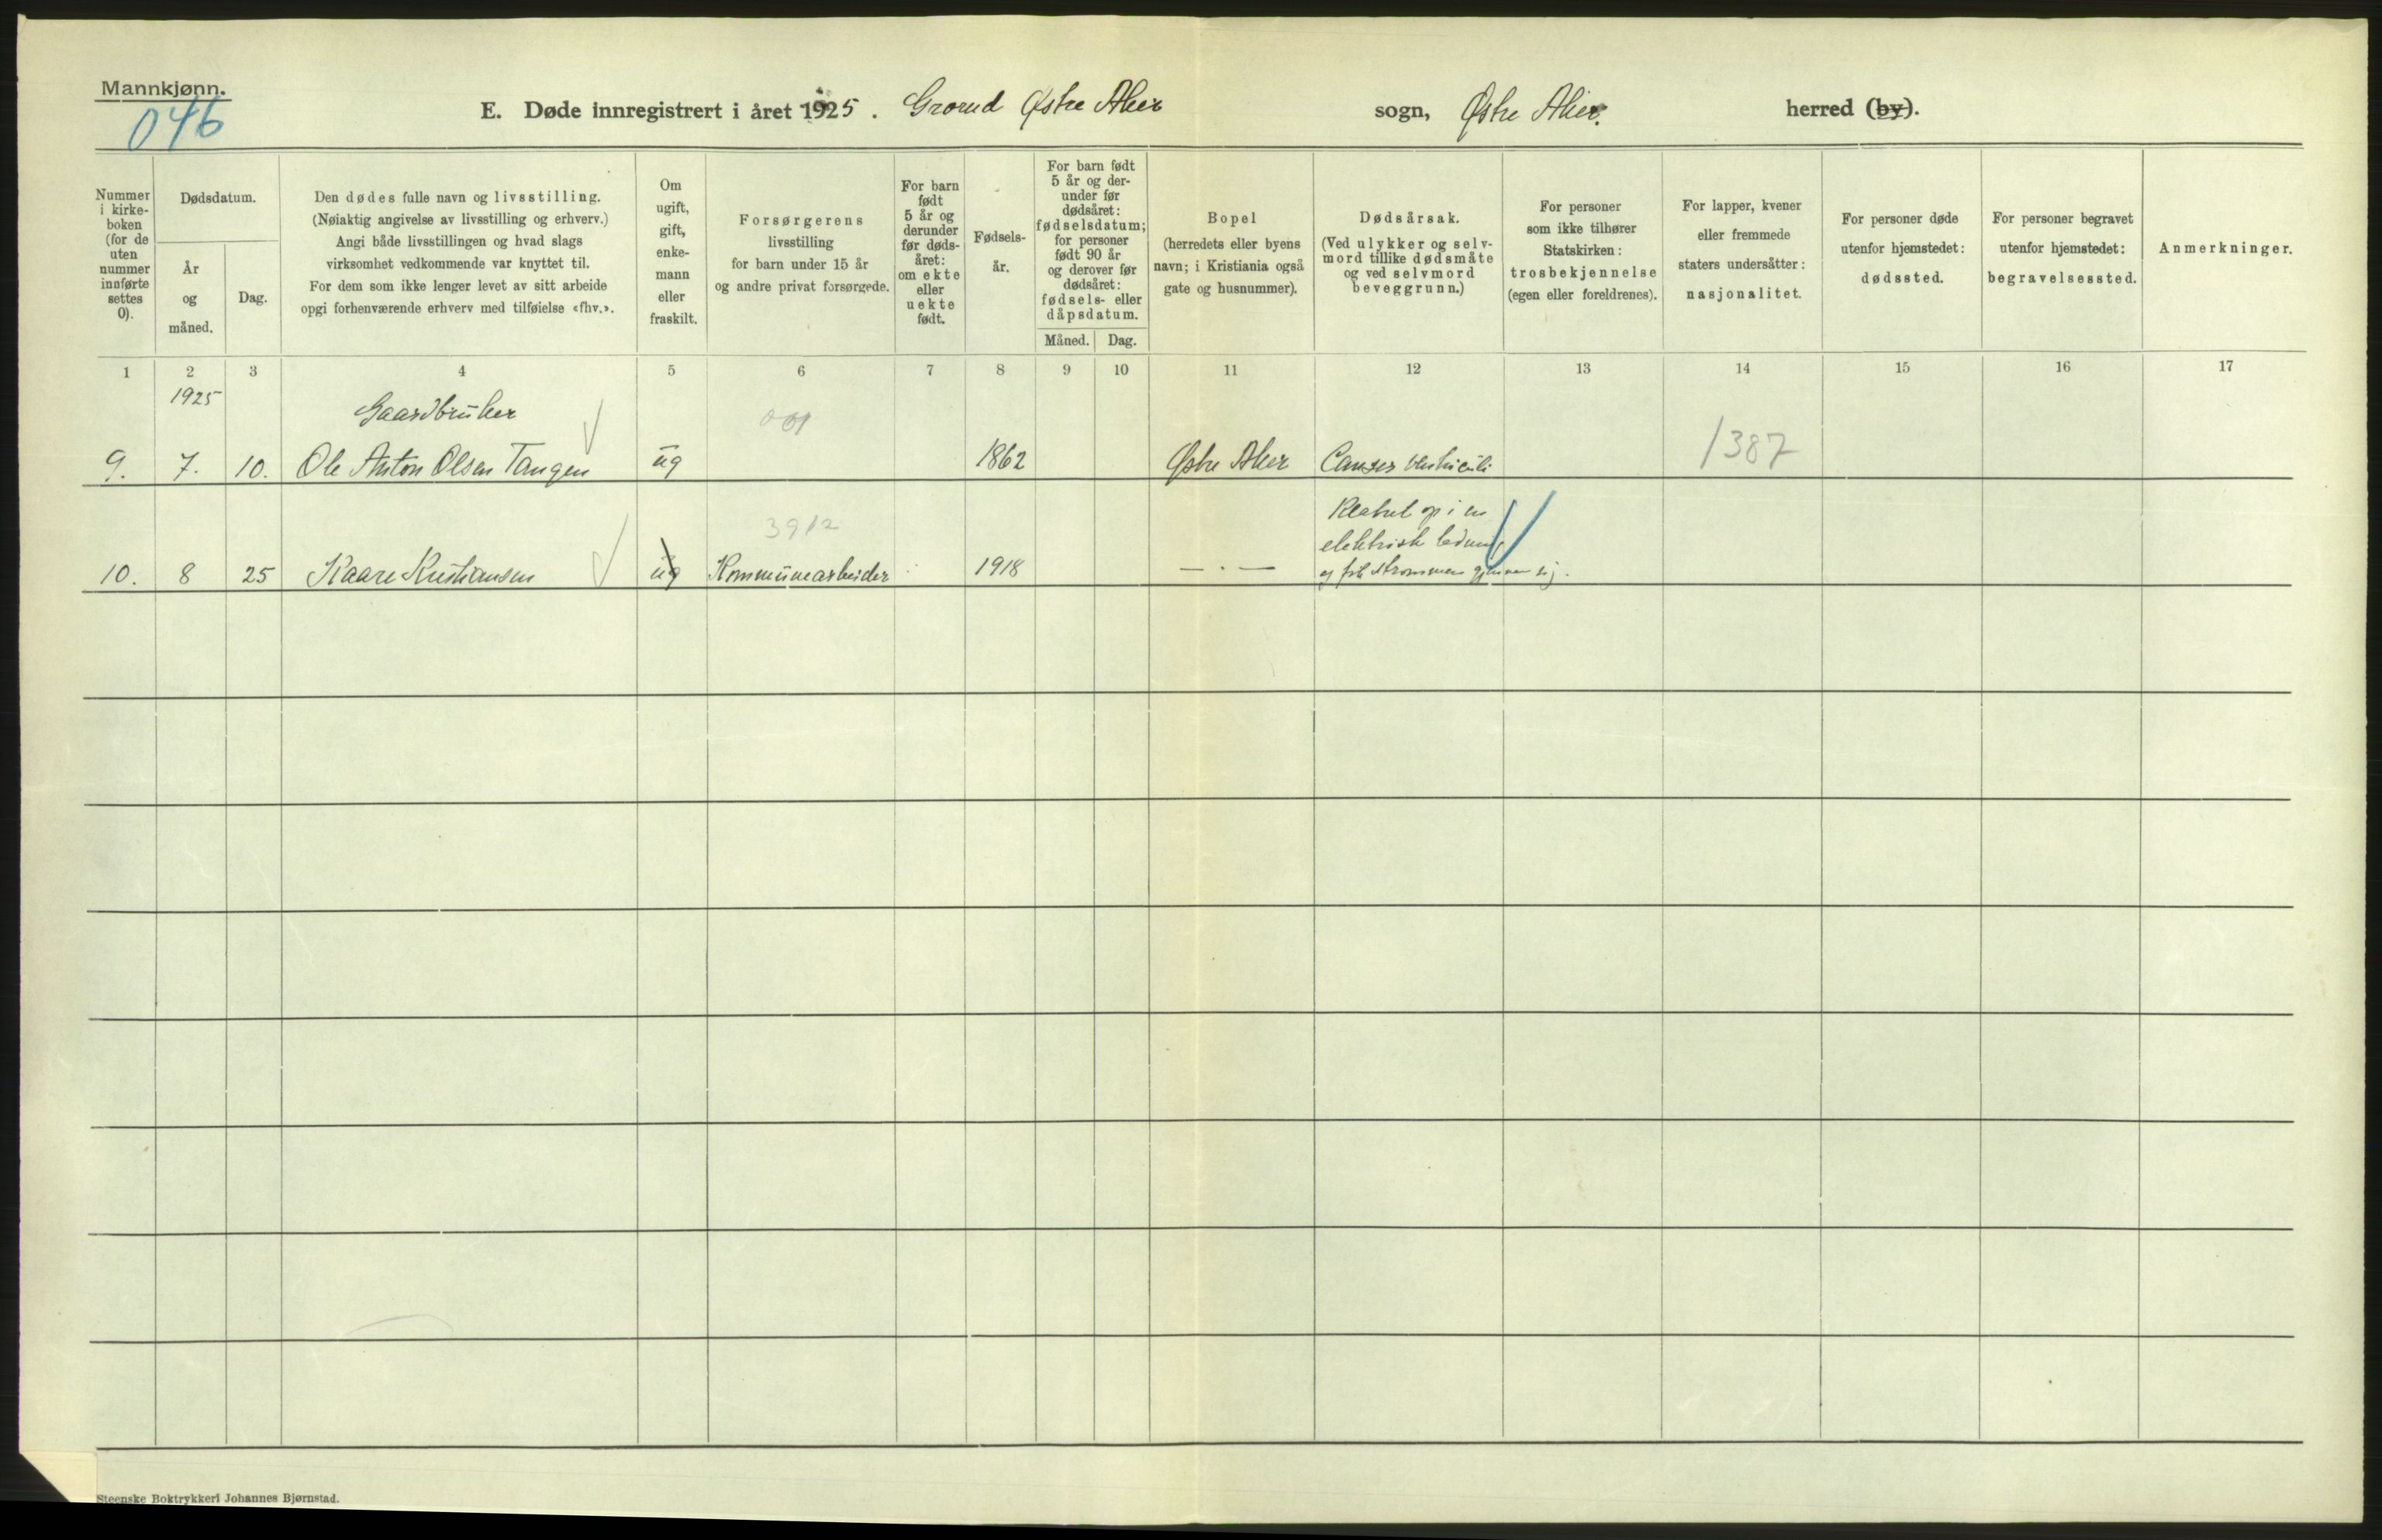 Mannkjønn.
046
E. Døde innregistrert i året 1925. Grorud Østre Aker sogn, Østre Aker herred (by).
Nummer i kirke-boken (for de uten nummer innførte settes 0).
Dødsdatum.
År og måned.
Dag.
Den dødes fulle navn og livsstilling.
(Nøiaktig angivelse av livsstilling og erhverv.)
Angi både livsstillingen og hvad slags
virksomhet vedkommende var knyttet til.
For dem som ikke lenger levet av sitt arbeide
opgi forhenværende erhverv med tilføielse «fhv.».
Om ugift, gift, enke-mann eller fraskilt.
Forsørgerens
livsstilling
for barn under 15 år
og andre privat forsørgede.
For barn født 5 år og derunder før døds-året: om ekte eller uekte født.
Fødsels-år.
For barn født 5 år og der-under før dødsåret: fødselsdatum; for personer født 90 år og derover før dødsåret: fødsels- eller dåpsdatum.
Måned. Dag.
Bopel
(herredets eller byens
navn; i Kristiania også
gate og husnummer).
Dødsårsak.
(Ved ulykker og selv-
mord tillike dødsmåte
og ved selvmord
beveggrunn.)
For personer
som ikke tilhører
Statskirken:
trosbekjennelse
(egen eller foreldrenes).
For lapper, kvener
eller fremmede
staters undersåtter:
nasjonalitet.
For personer døde
utenfor hjemstedet:
dødssted.
For personer begravet
utenfor hjemstedet:
begravelsessted.
Anmerkninger.
1 2 3 4 5 6 7 8 9 10 11 12 13 14 15 16 17
1925
Gaardbruker
001
9. 7. 10. Ole Anton Olsen Tangen ug 1862 Østre Aker Cancer ventriculi 1387
3912
Klatret op i en
elektrisk ledning
10. 8 25 Kaare Kristiansen ug Kommunearbeider 1918 — . — og fik strømmen gjennem sig.
Steenske Boktrykkeri Johannes Bjørnstad.